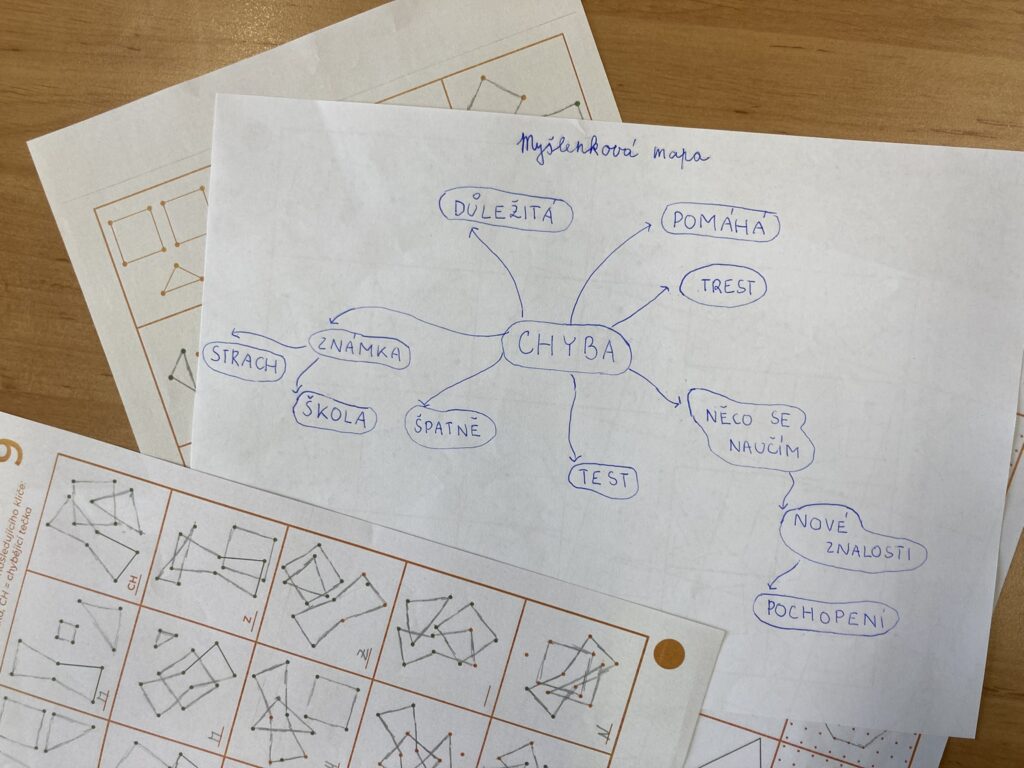 Myšlenková mapa
DŮLEŽITÁ
POMÁHÁ
TREST
CHYBA
ZNÁMKA
STRACH
ŠKOLA
ŠPATNĚ
NĚCO SE
NAUČÍM
TEST
NOVÉ
ZNALOSTI
POCHOPENÍ
9
následujícího klíče:
CH = chybějící tečka
CH
Z